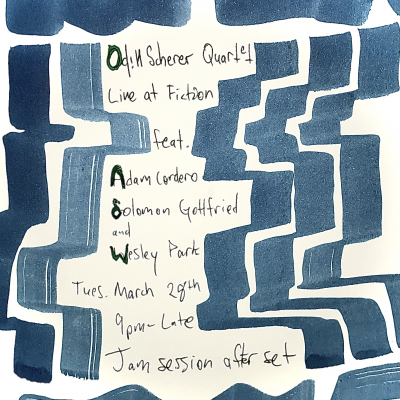 Odin Scherer Quartet
Live at Fiction
feat.
Adam Cordero
Solomon Gottfried
and
Wesley Park
Tues. March 28th
9pm-Late
Jam session after set